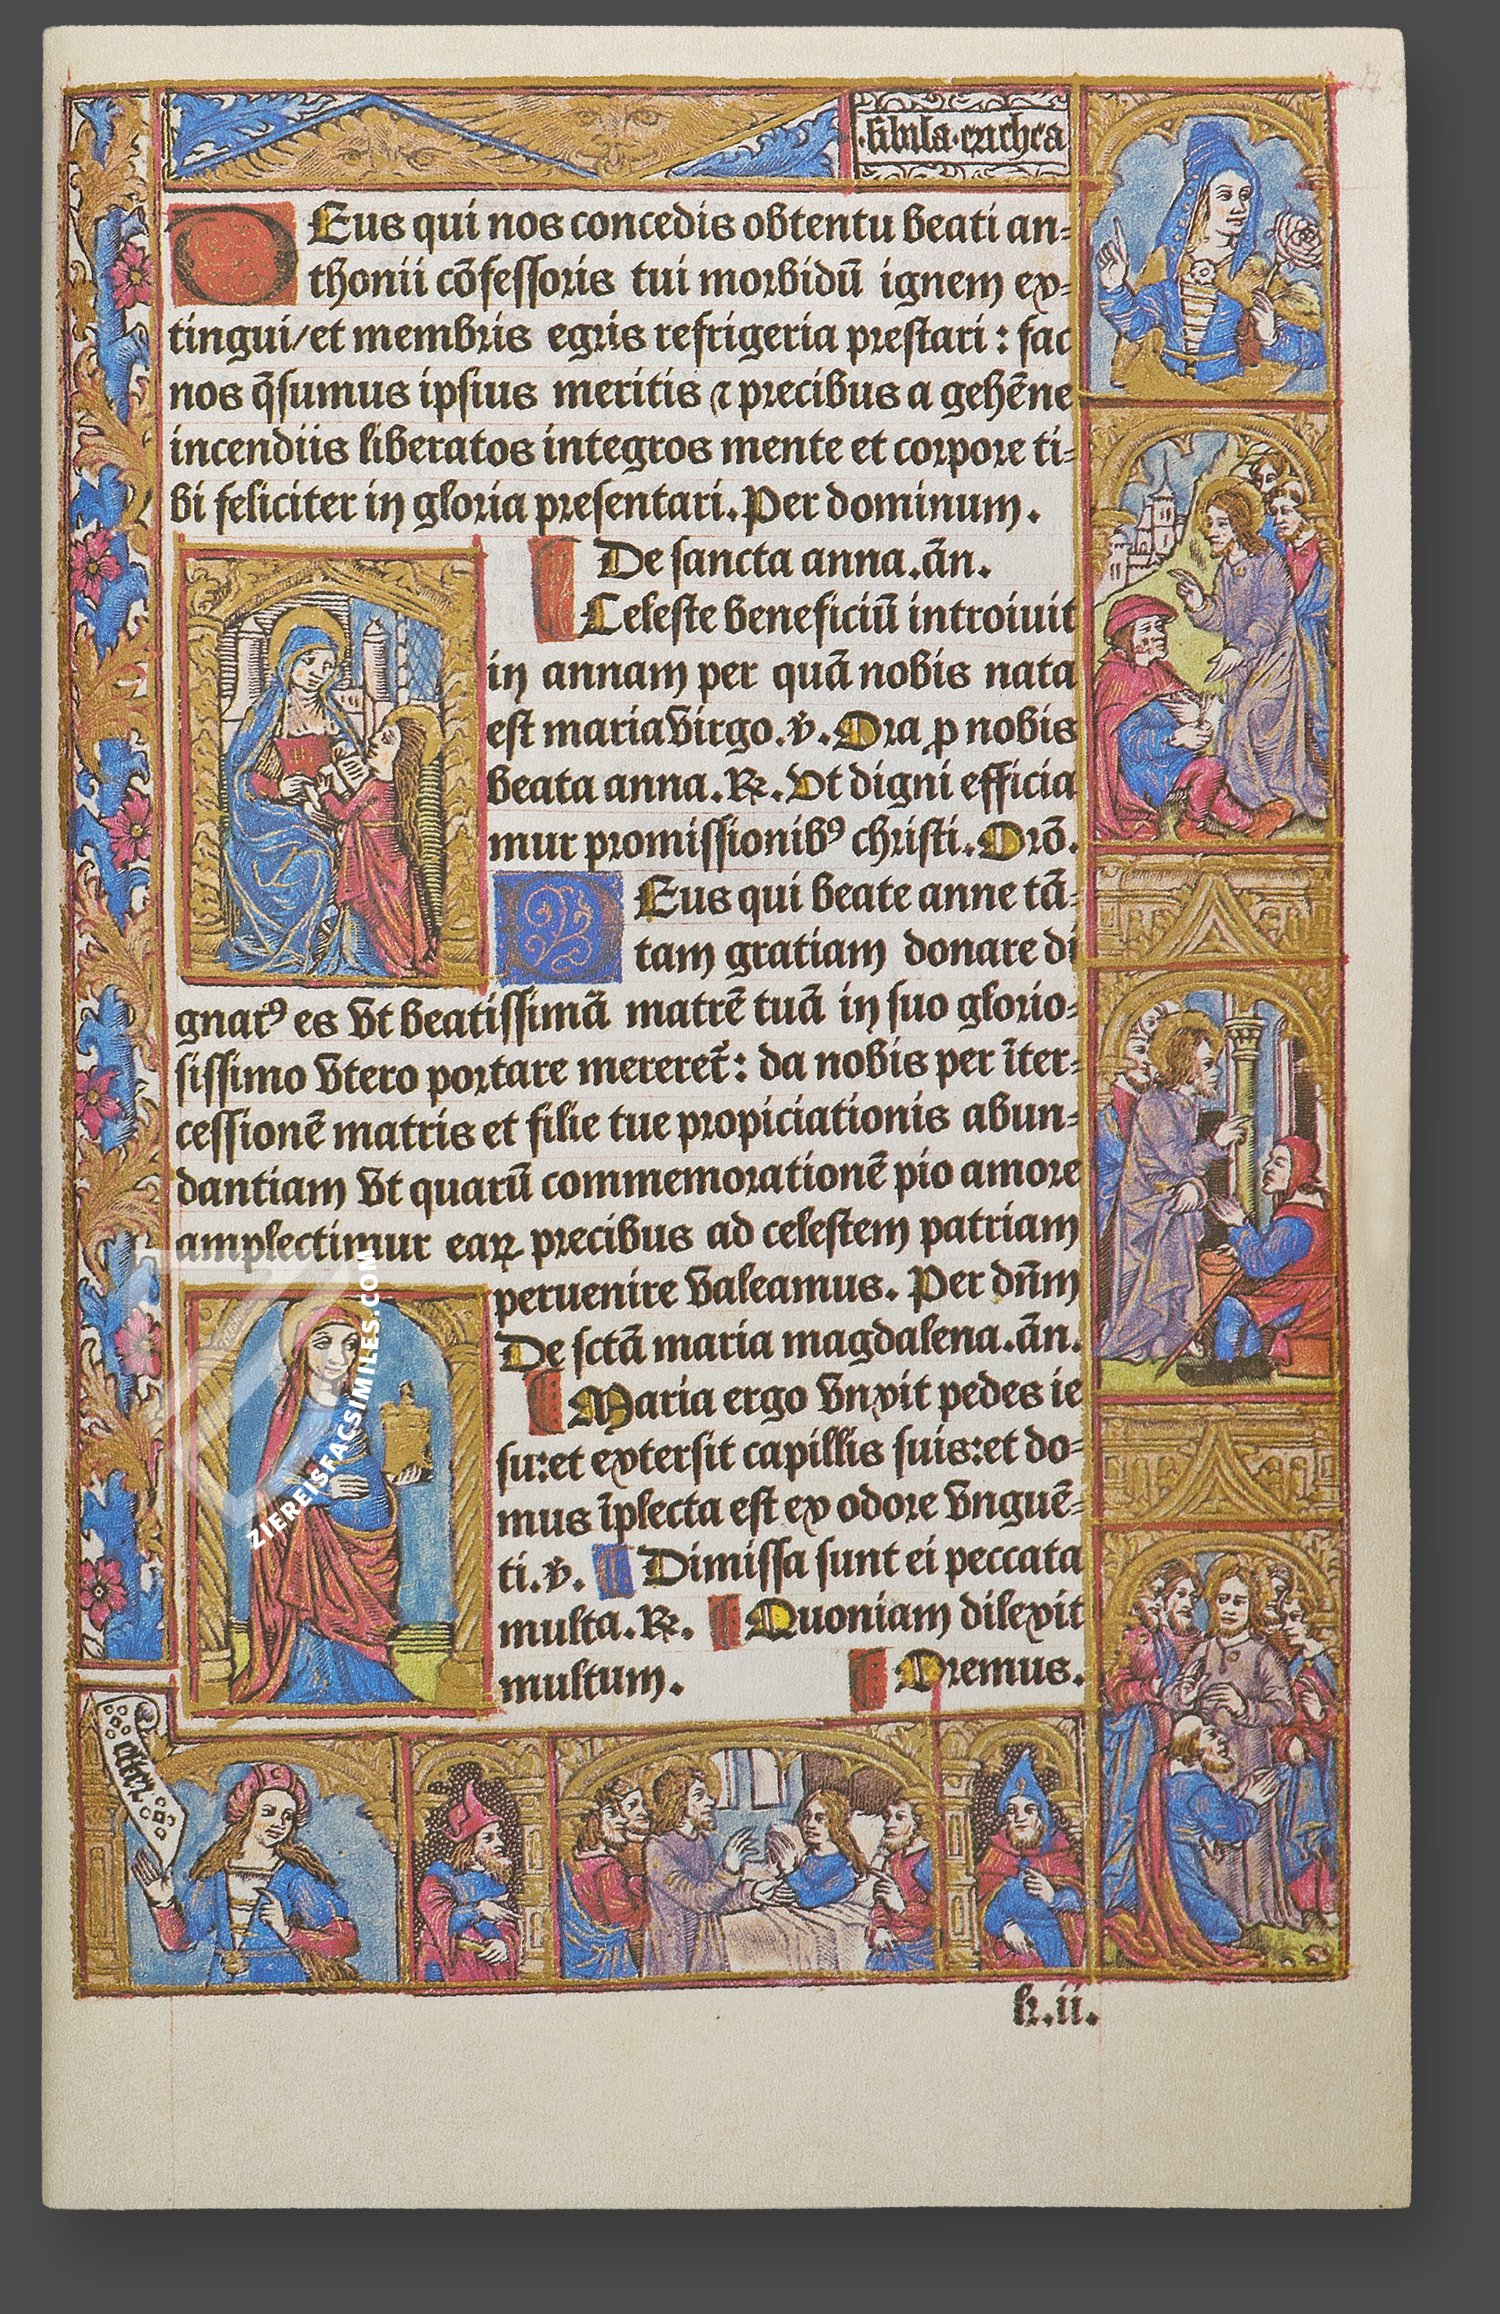 ·sibila·erichea
DEus qui nos concedis obtentu beati an=
thonii cōfessoris tui morbidū ignem ex=
tingui/et membris egris refrigeria prestari: fac
nos q̄sumus ipsius meritis ⁊ precibus a gehēne
incendiis liberatos integros mente et corpore ti=
bi feliciter in gloria presentari. Per dominum.
De sancta anna. ān.
Celeste beneficiū introiuit
in annam per quā nobis nata
est maria virgo. ℣. Ora ꝓ nobis
beata anna. ℟. Vt digni efficia
mur promissionibꝰ christi. Orō.
DEus qui beate anne tā=
tam gratiam donare di
gnatꝰ es vt beatissimā matrē tuā in suo glorio=
sissimo vtero portare mereret̄: da nobis per īter=
cessionē matris et filie tue propiciationis abun=
dantiam vt quarū commemorationē pio amore
amplectimur eaꝝ precibus ad celestem patriam
peruenire valeamus. Per dn̄m
De sctā maria magdalena. ān.
Maria ergo vnxit pedes ie
su: et extersit capillis suis: et do=
mus īplecta est ex odore vnguē=
ti. ℣. Dimissa sunt ei peccata
multa. ℟. Quoniam dilexit
multum. Oremus.
h.ii.
ZIEREISFACSIMILES.COM